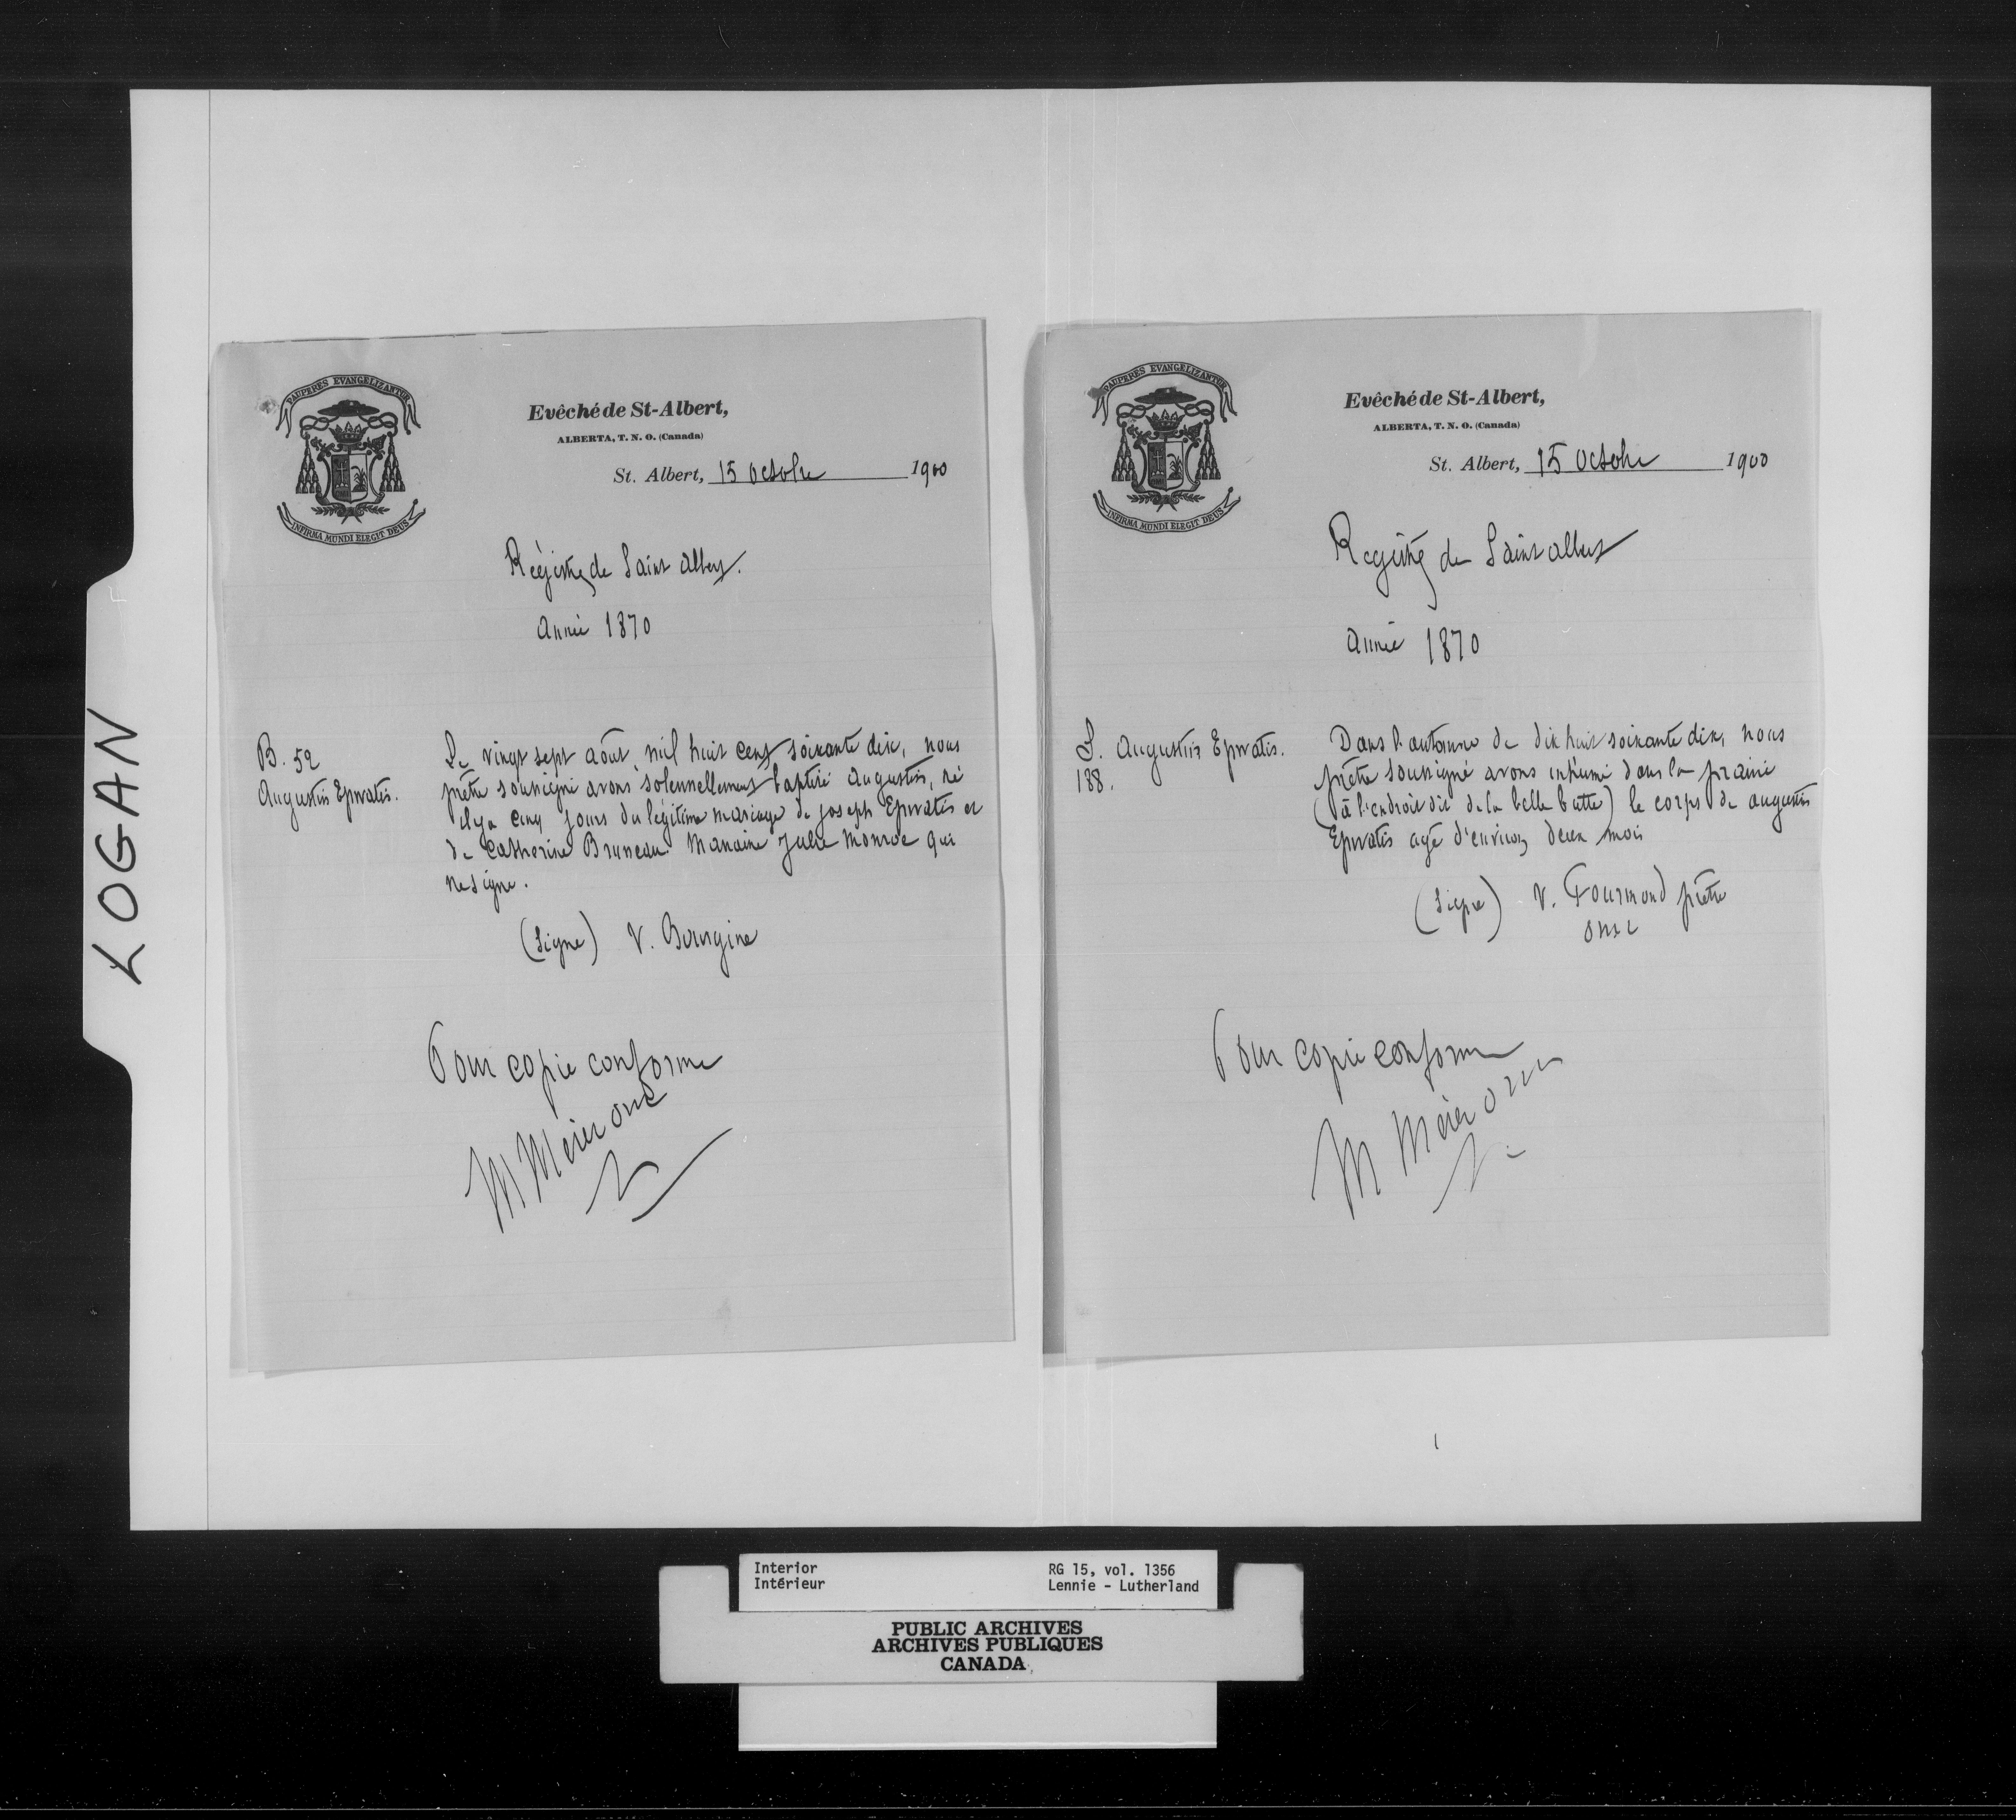 LOGAN
PAUPERES EVANGELIZANTUR
INFIRMA MUNDI ELEGIT DEUS
Evêché de St-Albert,
ALBERTA, T. N. O. (Canada)
St. Albert, 15 Octobre 1900
Régistre de Saint Albert.
Année 1870
B. 52
Augustin Epwatis.
Le vingt sept août, mil huit cent soixante dix, nous
prêtre soussigné avons solennellement baptisé Augustin, né
il y a cinq jours du légitime mariage de Joseph Epwatis et
de Catherine Bruneau. Marraine Julie Monroe qui
ne signe.
(Signé) V. Bourgine
Pour copie conforme
M Mérer omi
PAUPERES EVANGELIZANTUR
INFIRMA MUNDI ELEGIT DEUS
Evêché de St-Albert,
ALBERTA, T. N. O. (Canada)
St. Albert, 15 Octobre 1900
Registre de Saint Albert
Année 1870
S. Augustin Epwatis.
188.
Dans l'automne de dix huit soixante dix, nous
prêtre soussigné avons inhumé dans la prairie
(à l'endroit dit de la belle butte) le corps de Augustin
Epwatis agé d'environ deux mois
(Signé) V. Fourmond prêtre
omi
Pour copie conforme
M Mérer omi
Interior
Intérieur
RG 15, vol. 1356
Lennie - Lutherland
PUBLIC ARCHIVES
ARCHIVES PUBLIQUES
CANADA